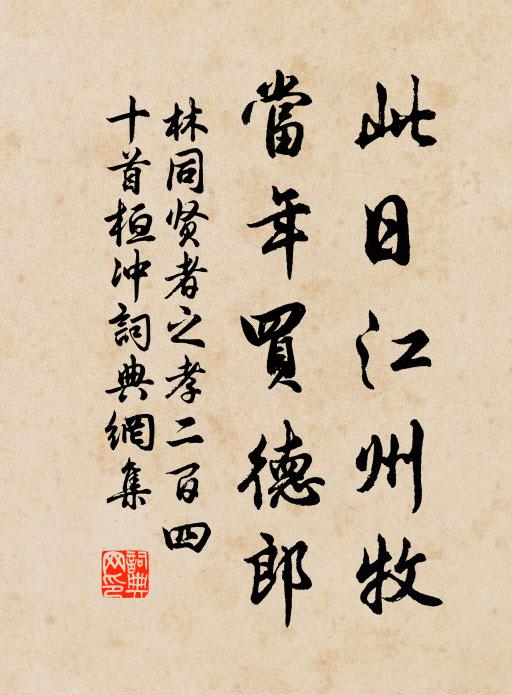 此日江州牧
當年買德郎
林同贤者之孝二百四
十首桓冲詞典網集
詞典網印